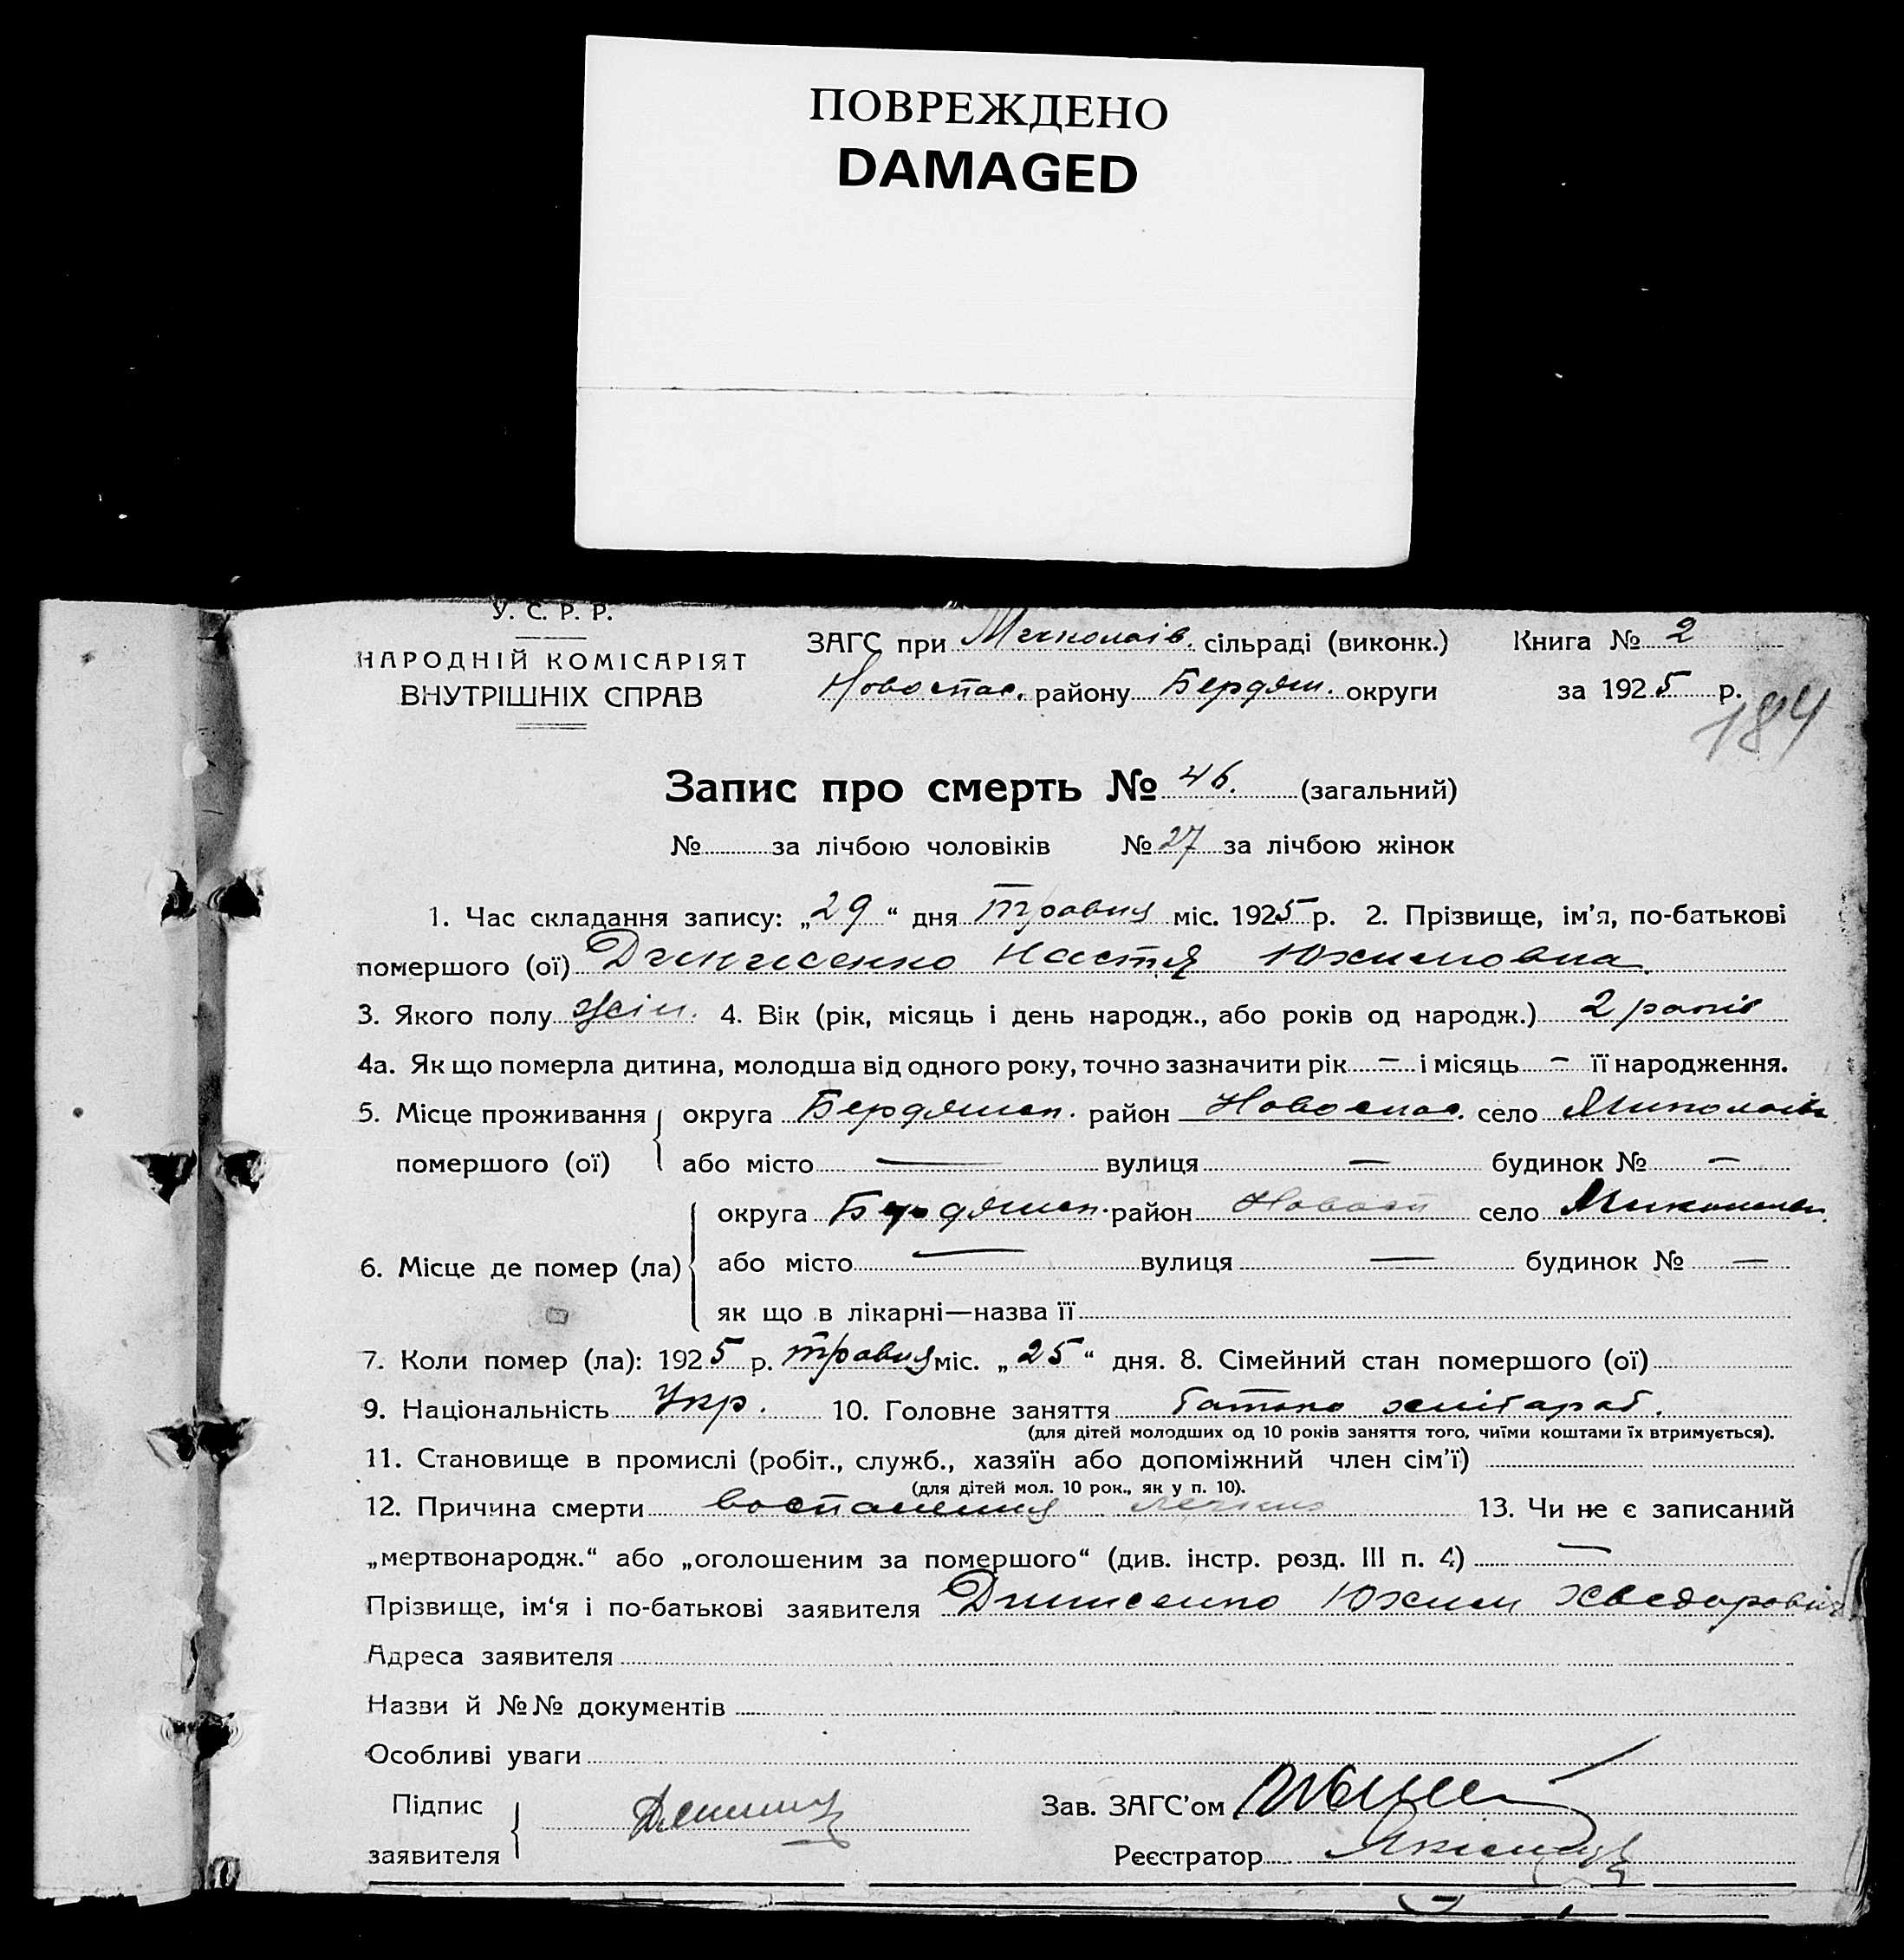 ПОВРЕЖДЕНО
DAMAGED
У. С. Р. Р.
НАРОДНІЙ КОМІСАРІЯТ
ВНУТРІШНІХ СПРАВ
ЗАГС при Миколаів. сільраді (виконк.) Книга № 2
Новоспас. району Бердян. округи за 1925 р.
184
Запис про смерть № 46. (загальний)
№ за лічбою чоловіків № 27 за лічбою жінок
1. Час складання запису: „29“ дня травня міс. 1925 р. 2. Прізвище, ім’я, по-батькові
помершого (ої) Динисенко Настя Юхимовна.
3. Якого полу жін. 4. Вік (рік, місяць і день народж., або років од народж.) 2 років
4а. Як що померла дитина, молодша від одного року, точно зазначити рік — і місяць — її народження.
5. Місце проживання округа Бердянск. район Новоспас. село Миколаів.
помершого (ої) або місто — вулиця — будинок № —
6. Місце де помер (ла) округа Бердянск. район Новосп село
або місто — вулиця — будинок № —
як що в лікарні—назва її
7. Коли помер (ла): 1925 р. травня міс. „25“ дня. 8. Сімейний стан помершого (ої)
9. Національність Укр. 10. Головне заняття батько хлібараб.
(для дітей молодших од 10 років заняття того, чиїми коштами їх втримується).
11. Становище в промислі (робіт., служб., хазяїн або допоміжний член сім’ї)
(для дітей мол. 10 рок., як у п. 10).
12. Причина смерти воспаления легких 13. Чи не є записаний
„мертвонародж.“ або „оголошеним за помершого“ (див. інстр. розд. III п. 4) —
Прізвище, ім‘я і по-батькові заявителя Динисенко Юхим Хведорович
Адреса заявителя
Назви й №№ документів
Особливі уваги
Підпис
заявителя
Зав. ЗАГС’ом
Реєстратор